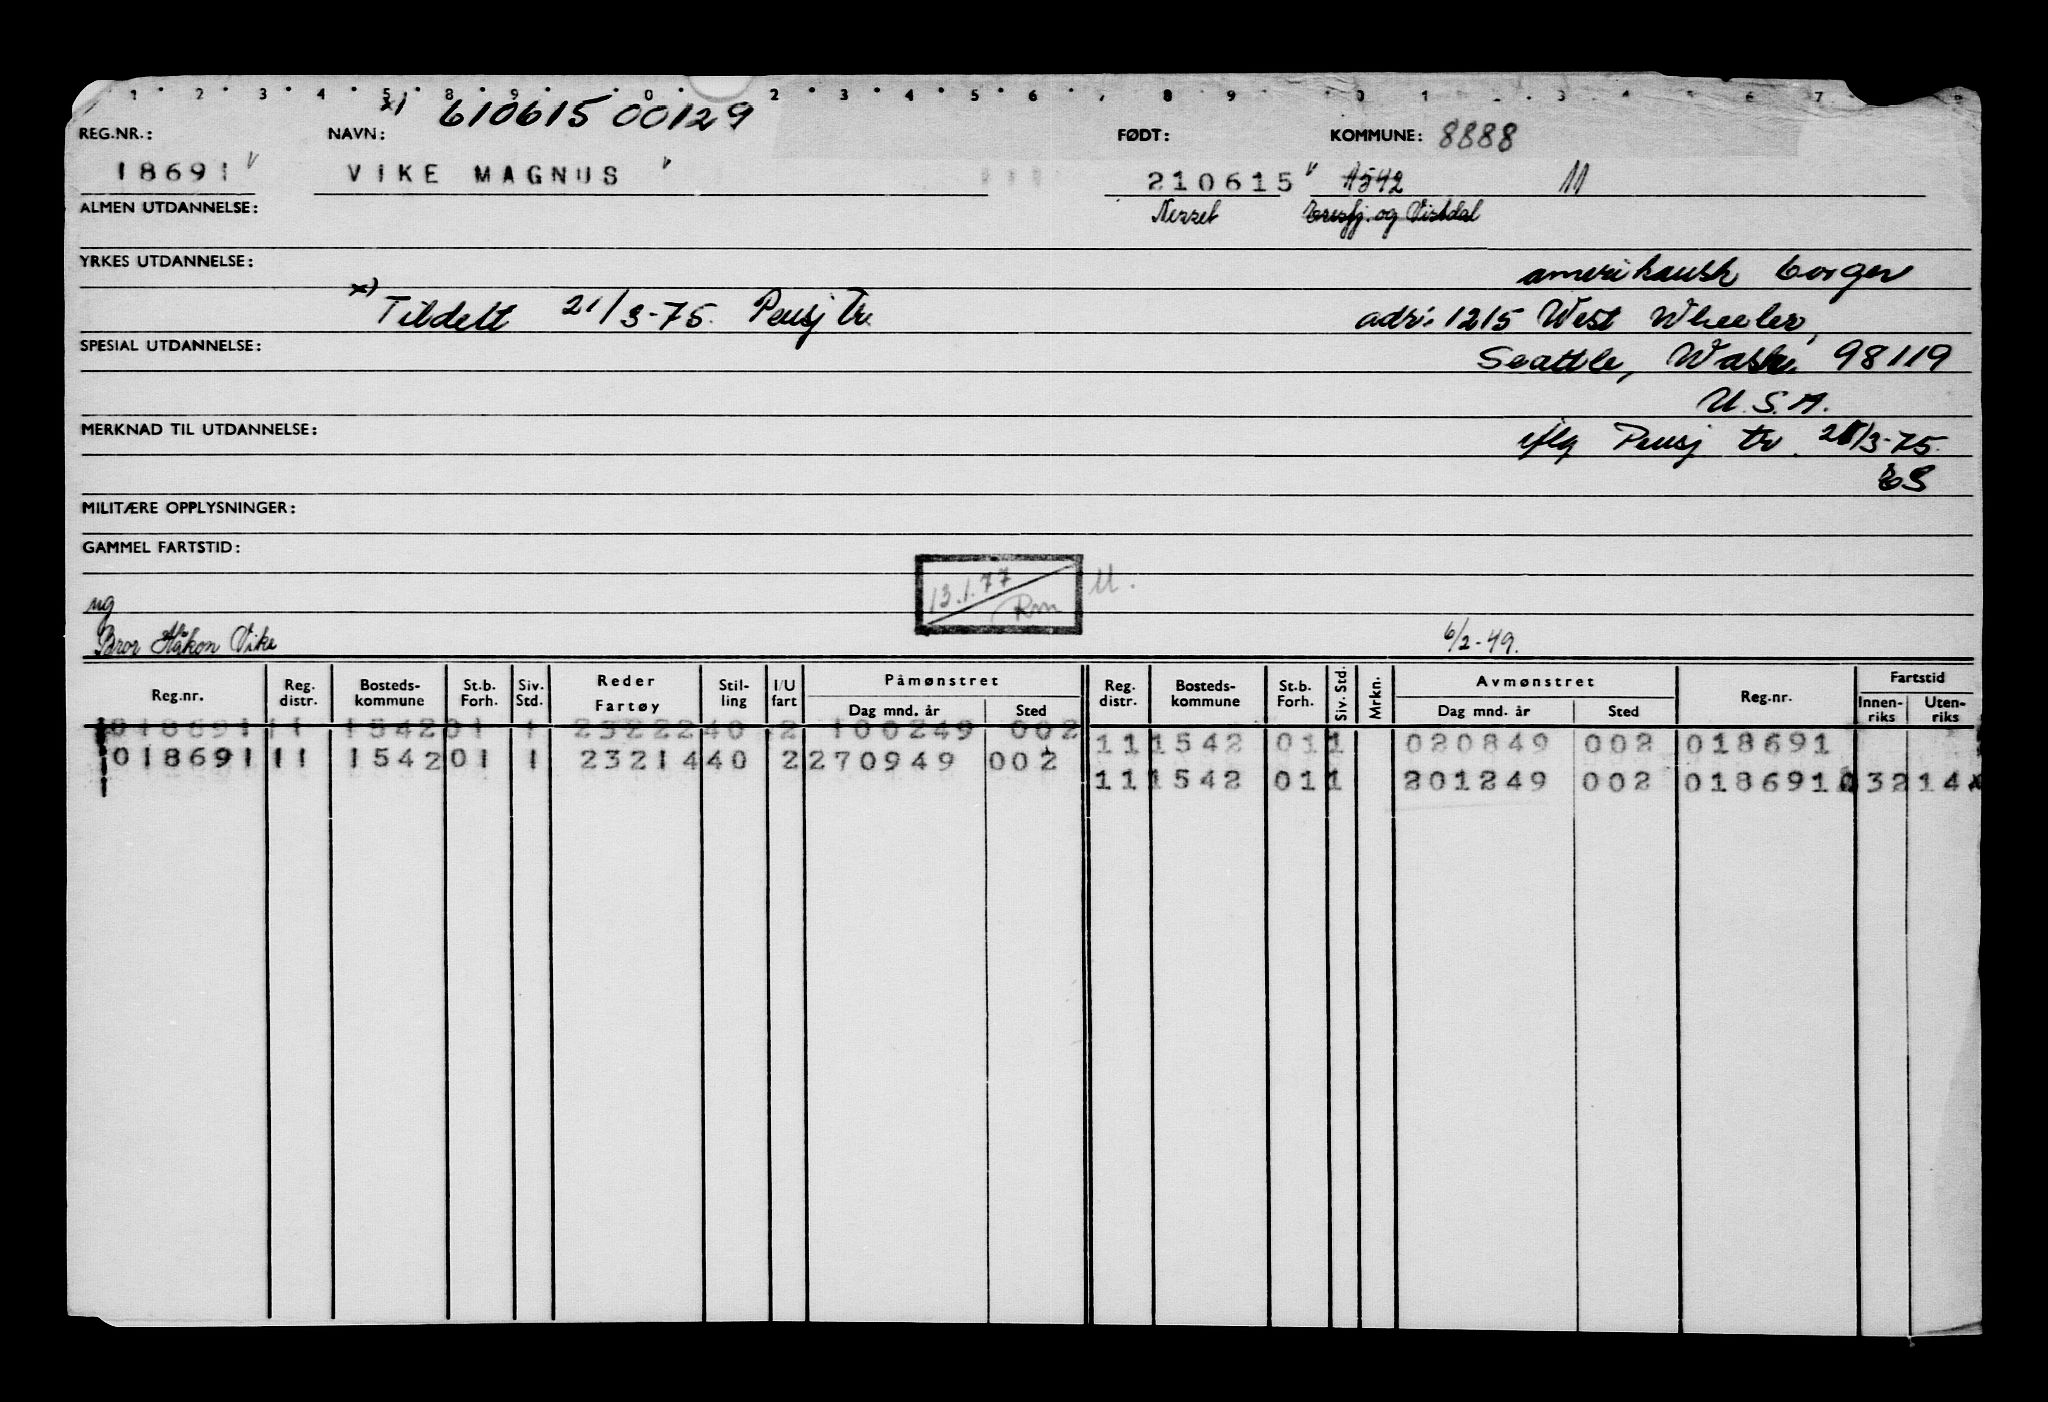 x) 61061500129
REG.NR.: NAVN: FØDT: KOMMUNE: 8888
18691 v VIKE MAGNUS v 210615 v 1542 11
ALMEN UTDANNELSE: Nesset Eresfj. og Vistdal
YRKES UTDANNELSE: amerikansk borger
x) Tildelt 21/3-75. Pensj tr. adr: 1215 West Wheeler,
SPESIAL UTDANNELSE: Seattle, Wash. 98119
U.S.A.
MERKNAD TIL UTDANNELSE: iflg Pensj tr. 21/3-75.
ES
MILITÆRE OPPLYSNINGER:
GAMMEL FARTSTID:
13.1.77 Rm M.
ug
Bror Håkon Vike 6/2-49.
Reg.nr. Reg. distr. Bosteds-kommune St.b. Forh. Siv. Std. Reder Fartøy Stil-ling I/U fart Påmønstret Dag mnd. år Sted Reg. distr. Bosteds-kommune St.b. Forh. Siv. Std. Mrkn. Avmønstret Dag mnd. år Sted Reg.nr. Fartstid Innen-riks Uten-riks
018691 11 1542 01 1 23222 40 2 100249 002
11 1542 01 1 020849 002 018691
018691 11 1542 01 1 23214 40 2 270949 002
11 1542 01 1 201249 002 018691 032 14